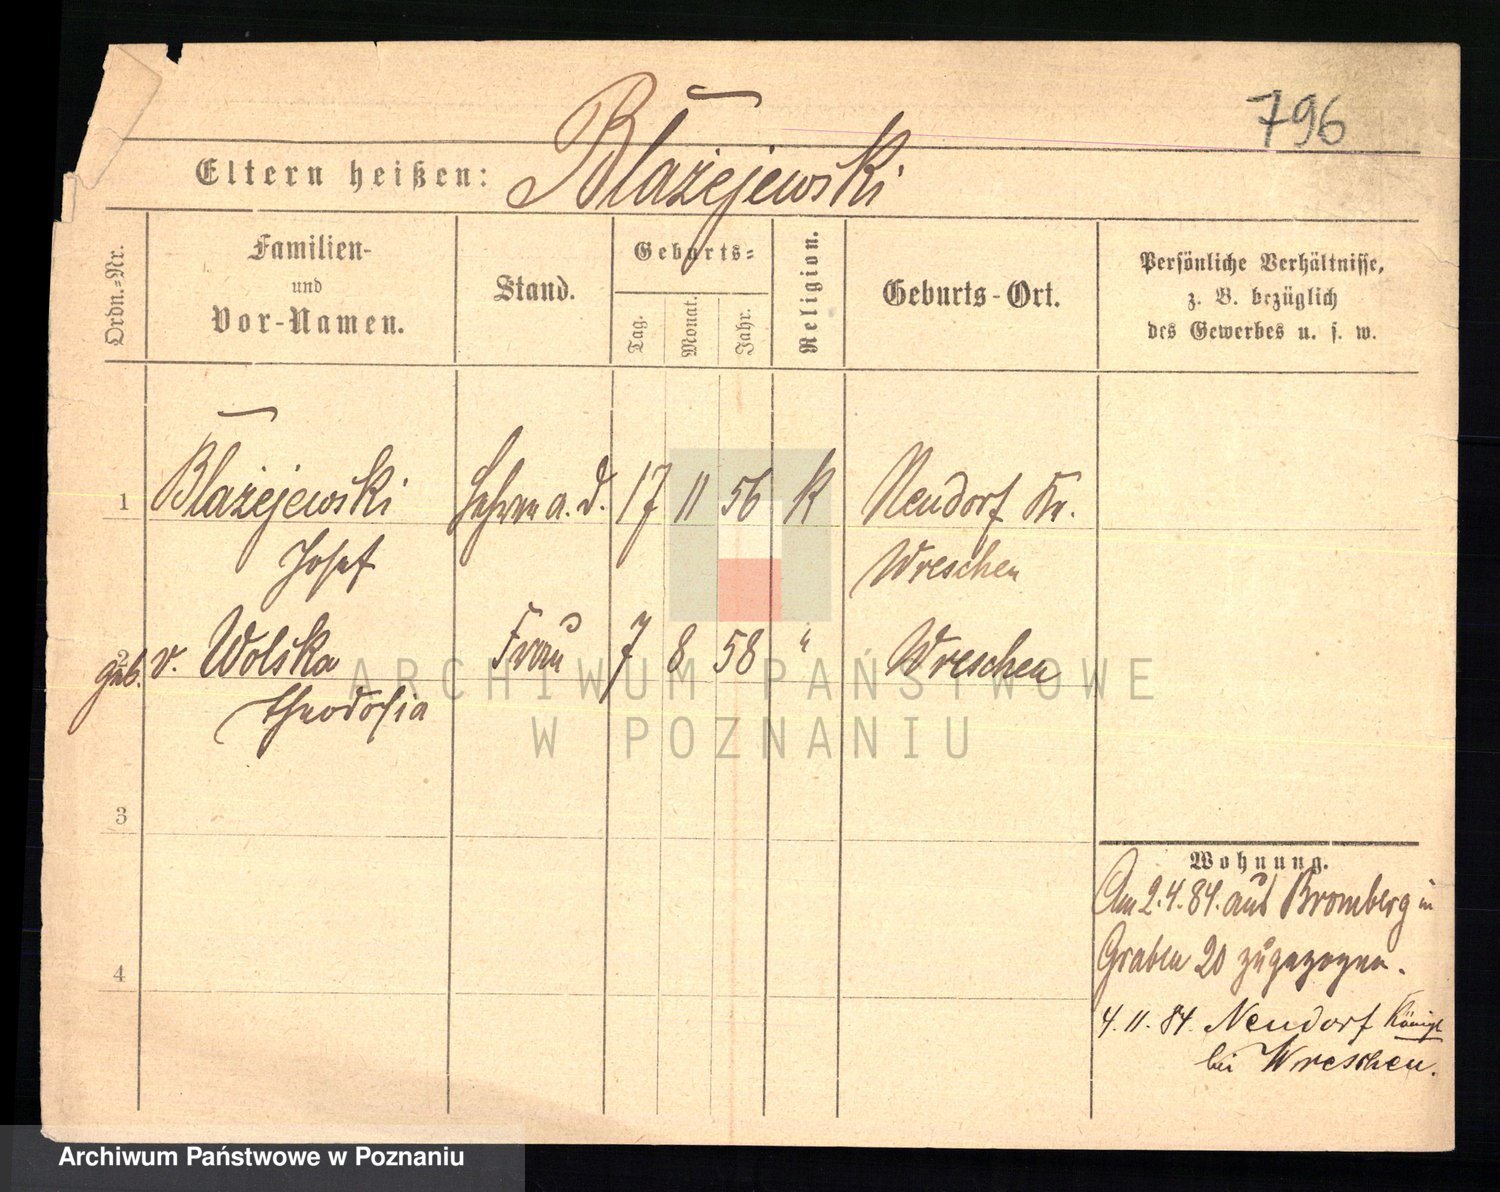 796
Eltern heißen: Błażejewski
Ordn.-Nr.
Familien-
und
Vor-Namen.
Stand.
Geburts-
Tag.
Monat.
Jahr.
Religion.
Geburts-Ort.
Persönliche Verhältnisse,
z. B. bezüglich
des Gewerbes u. s. w.
1 Błażejewski Lehrer a. D. 17 11 56 K Neudorf Kr.
Josef Wreschen
2 geb. v. Wolska Frau 7 8 58 " Wreschen
Theodosia
ARCHIWUM PAŃSTWOWE
W POZNANIU
3
4
Wohnung.
Am 2.4.84. aus Bromberg in
Graben 20 zugezogen.
4.11.84. Neudorf Königl
bei Wreschen.
Archiwum Państwowe w Poznaniu